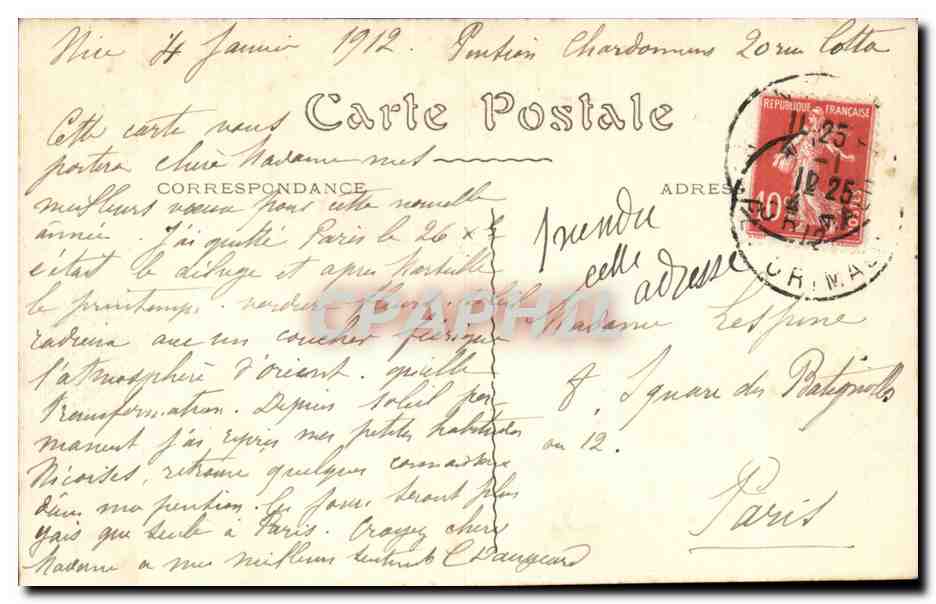 Nice 4 Janvier 1912. Pension Chardonnens 20 rue Cotta
Carte Postale
Cette carte vous
portera chère Madame mes
CORRESPONDANCE
ADRESSE
meilleurs vœux pour cette nouvelle
année. J'ai quitté Paris le 26 x
c'était le déluge et après Marseille
le printemps. verdure fleurs soleil
radieux avec un coucher féerique
l'atmosphère d'Orient. quelle
transformation. Depuis soleil per-
manent j'ai repris mes petites habitudes
Niçoises, retrouvé quelques
dans ma pension. les jours seront plus
gais que seule à Paris. Croyez chère
Madame à mes meilleurs sentiments C
prendre
cette
adresse
Madame Lespine
8, Square des Batignolles
ou 12.
Paris
REPUBLIQUE FRANÇAISE
10
CPAPHIL